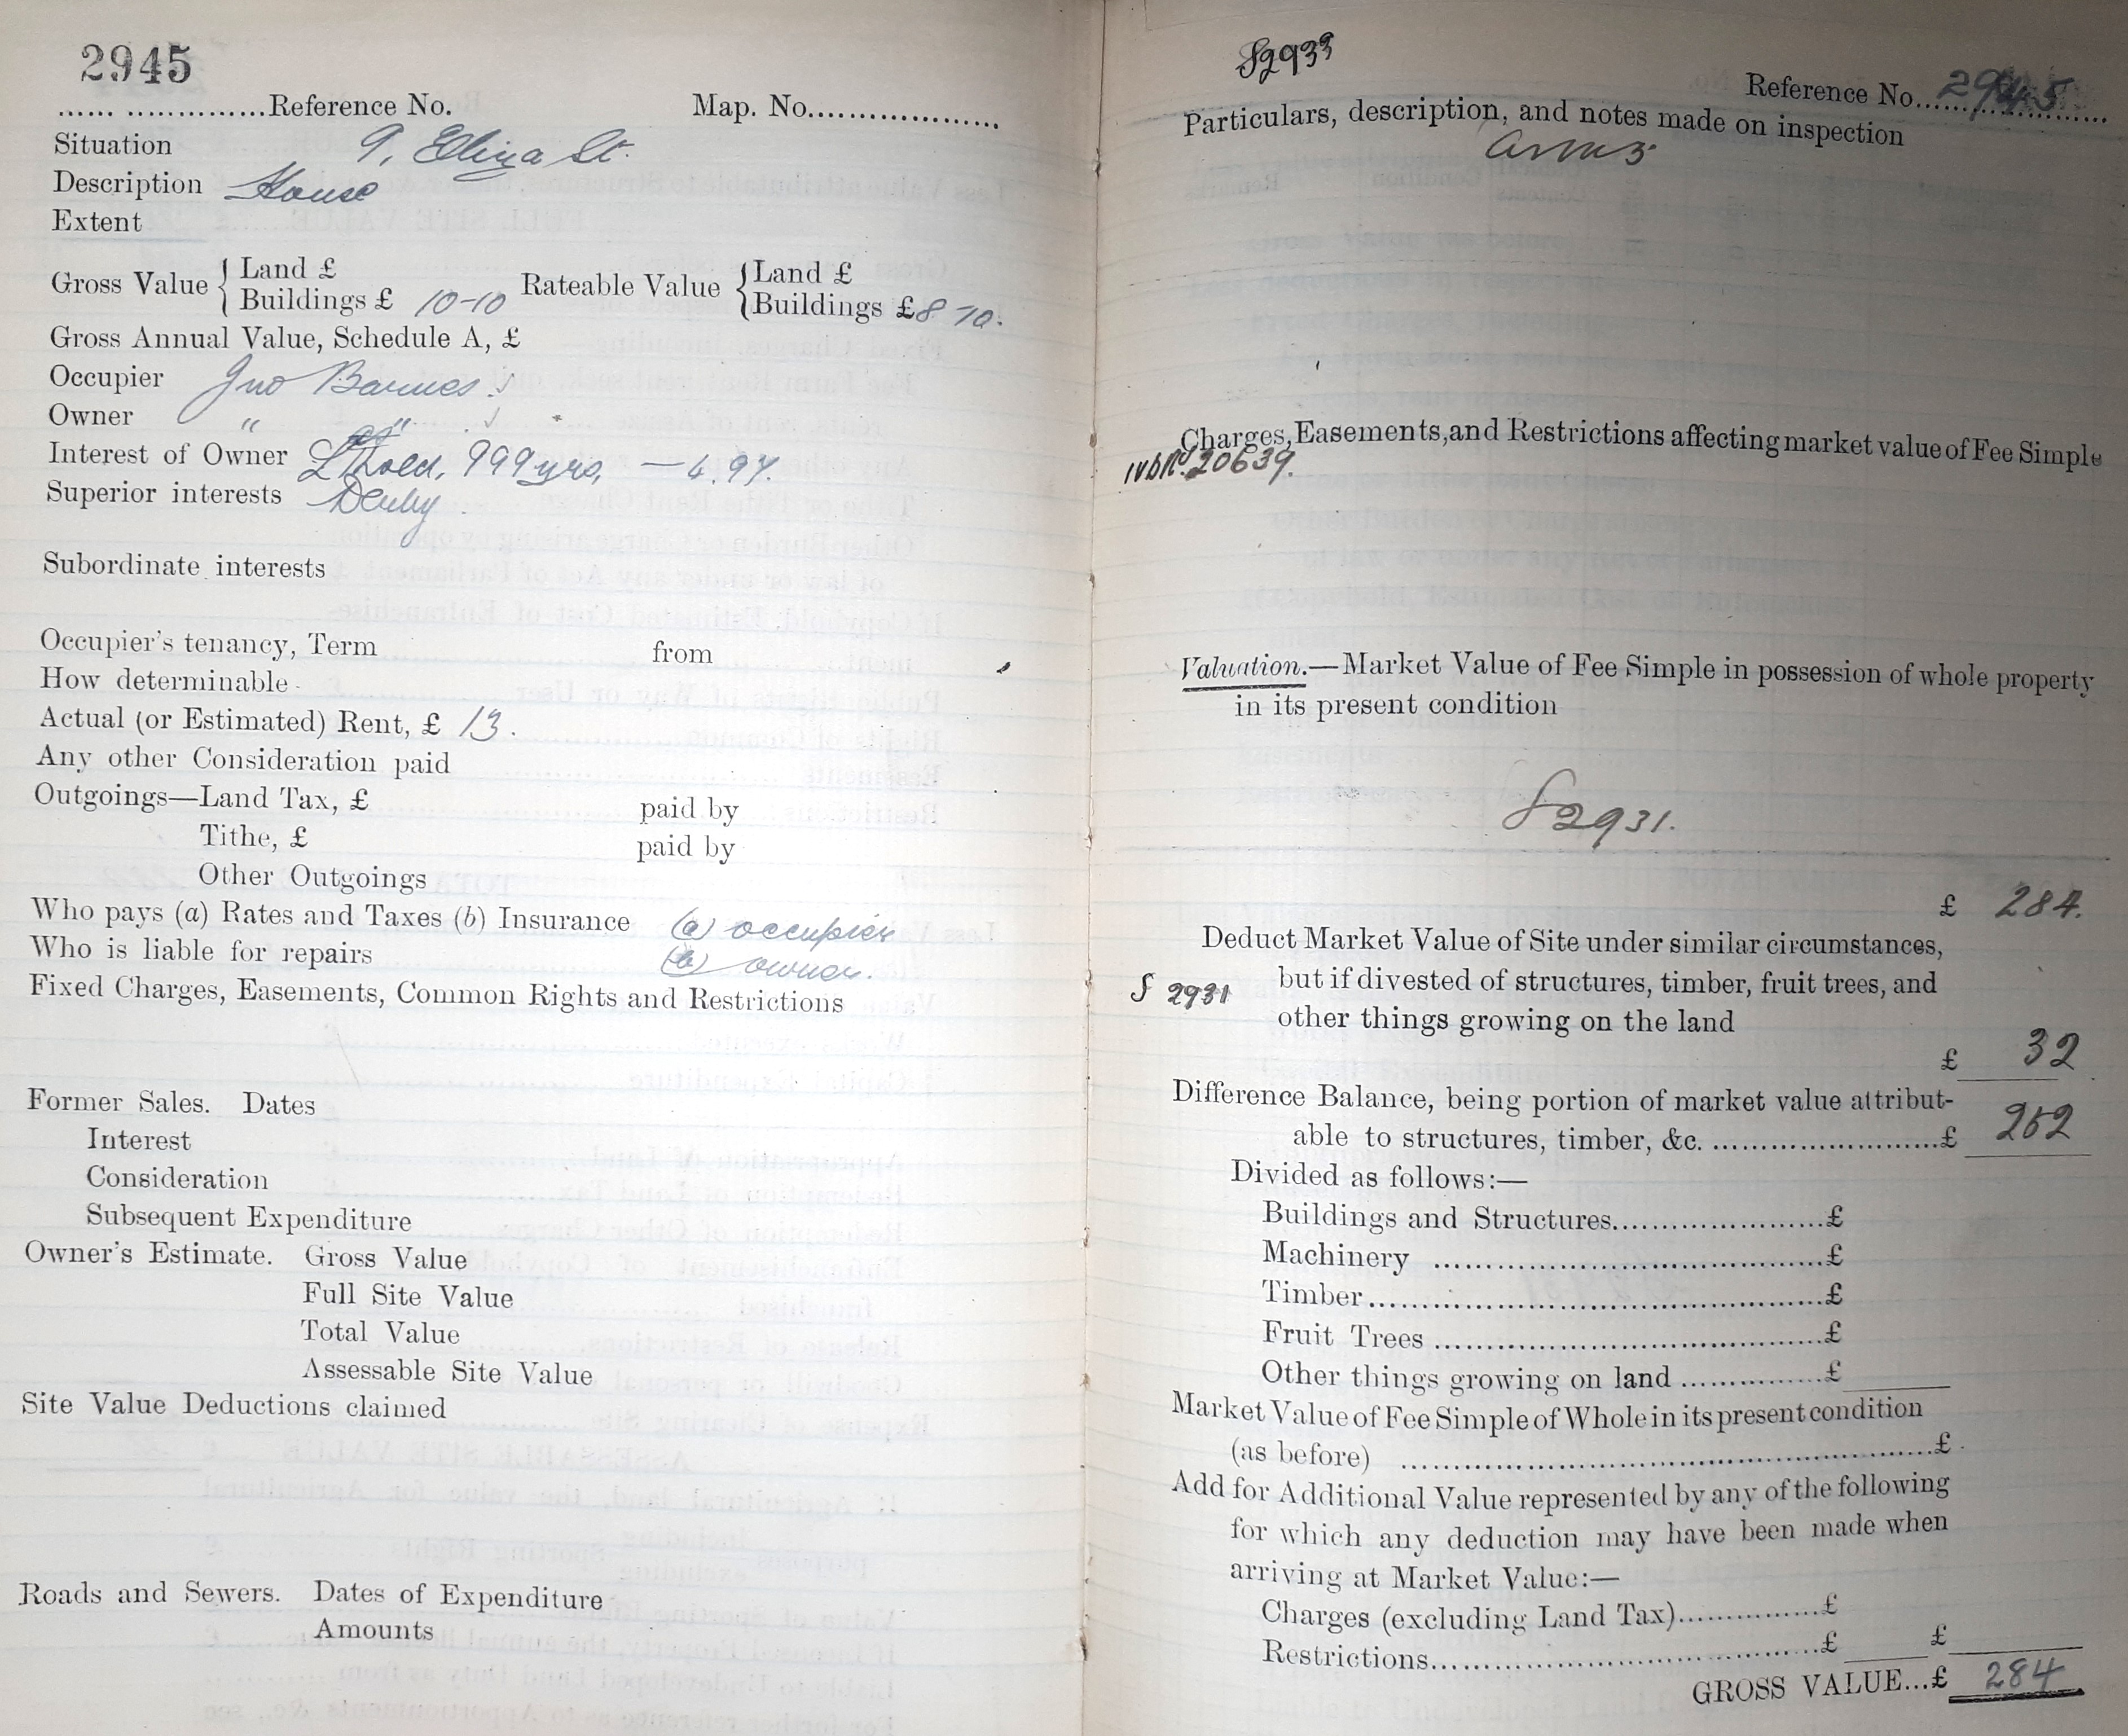 2945
...... ................Reference No. Map. No......................
Situation 9, Eliza St.
Description House
Extent
Gross Value { Land £ Rateable Value { Land £
Buildings £ 10-10 Buildings £ 8-10.
Gross Annual Value, Schedule A, £
Occupier Jno Barnes
Owner " "
Interest of Owner L'hold, 999 yrs, — 4.97.
Superior interests Derby
Subordinate interests
Occupier's tenancy, Term from
How determinable
Actual (or Estimated) Rent, £ 13.
Any other Consideration paid
Outgoings—Land Tax, £ paid by
Tithe, £ paid by
Other Outgoings
Who pays (a) Rates and Taxes (b) Insurance (a) occupier
Who is liable for repairs (b) owner.
Fixed Charges, Easements, Common Rights and Restrictions
Former Sales. Dates
Interest
Consideration
Subsequent Expenditure
Owner's Estimate. Gross Value
Full Site Value
Total Value
Assessable Site Value
Site Value Deductions claimed
Roads and Sewers. Dates of Expenditure
Amounts
S2933
Reference No. 2945
Particulars, description, and notes made on inspection
Charges, Easements, and Restrictions affecting market value of Fee Simple
20639.
Valuation.—Market Value of Fee Simple in possession of whole property
in its present condition
S2931.
£ 284.
Deduct Market Value of Site under similar circumstances,
but if divested of structures, timber, fruit trees, and
S 2931
other things growing on the land
£ 32
Difference Balance, being portion of market value attribut-
able to structures, timber, &c. ..........................£ 252
Divided as follows:—
Buildings and Structures........................£
Machinery ..............................................£
Timber.....................................................£
Fruit Trees ..............................................£
Other things growing on land .................£
Market Value of Fee Simple of Whole in its present condition
(as before) ................................................................£
Add for Additional Value represented by any of the following
for which any deduction may have been made when
arriving at Market Value:—
Charges (excluding Land Tax)................£
Restrictions.............................................£ £
GROSS VALUE...£ 284